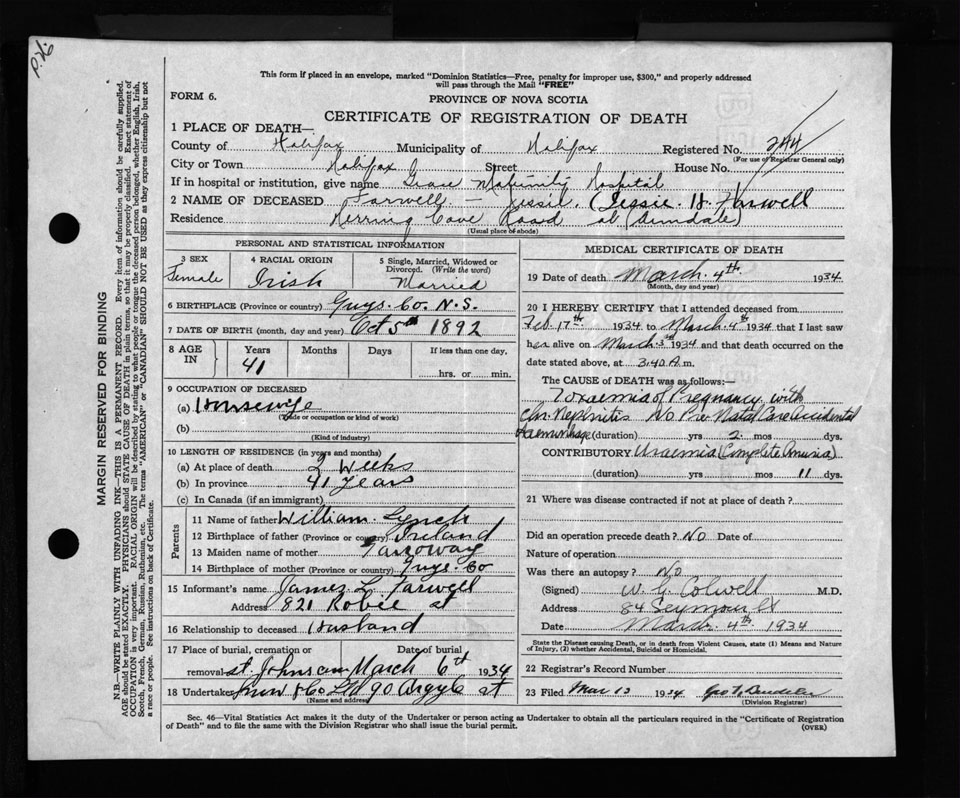 P.26
This form if placed in an envelope, marked "Dominion Statistics—Free, penalty for improper use, $300," and properly addressed
will pass through the Mail "FREE"
FORM 6.
PROVINCE OF NOVA SCOTIA
CERTIFICATE OF REGISTRATION OF DEATH
1 PLACE OF DEATH—
County of Halifax Municipality of Halifax Registered No. 244
(For use of Registrar General only)
City or Town Halifax Street House No.
If in hospital or institution, give name Grace Maternity Hospital
2 NAME OF DECEASED Farwell - Jessie. (Jessie. H. Farwell
Residence Herring Cove Road at (Armdale)
(Usual place of abode)
PERSONAL AND STATISTICAL INFORMATION
3 SEX Female
4 RACIAL ORIGIN Irish
5 Single, Married, Widowed or Divorced. (Write the word) Married
6 BIRTHPLACE (Province or country) Guys. Co. N.S.
7 DATE OF BIRTH (month, day and year) Oct 5th 1892
8 AGE IN Years 41 Months Days If less than one day. hrs. or min.
9 OCCUPATION OF DECEASED
(a) Housewife
(Trade or occupation or kind of work)
(b)
(Kind of industry)
10 LENGTH OF RESIDENCE (in years and months)
(a) At place of death 2 Weeks
(b) In province 41 Years
(c) In Canada (if an immigrant)
Parents
11 Name of father William. Lynch
12 Birthplace of father (Province or country) Ireland
13 Maiden name of mother
14 Birthplace of mother (Province or country) Guys. Co
15 Informant's name James L. Farwell
Address 821 Robie st
16 Relationship to deceased Husband
17 Place of burial, cremation or removal St. Johns cem Date of burial March 6th 1934
18 Undertaker Snow & Co Ltd 90 Argyle st
(Name and address)
MEDICAL CERTIFICATE OF DEATH
19 Date of death March. 4th. 1934
(Month, day and year)
20 I HEREBY CERTIFY that I attended deceased from
Feb. 17th 1934 to March. 4th 1934 that I last saw
her alive on March. 3rd 1934 and that death occurred on the
date stated above, at 3.40 A. m.
The CAUSE OF DEATH was as follows:—
Toxaemia of Pregnancy with
Chr. Nephritis No Pre Natal Care Accidental
Haemorrhage (duration) yrs 2 mos dys.
CONTRIBUTORY Uraemia (Complete Anuria)
(duration) yrs mos 11 dys.
21 Where was disease contracted if not at place of death?
Did an operation precede death? No Date of
Nature of operation
Was there an autopsy? No
(Signed) W. G. Colwell M.D.
Address 84 Seymour St
Date March. 4th 1934
State the Disease causing Death, or in death from Violent Causes, state (1) Means and Nature
of Injury, (2) whether Accidental, Suicidal or Homicidal.
22 Registrar's Record Number
23 Filed Mar 13 1934
(Division Registrar)
Sec. 46—Vital Statistics Act makes it the duty of the Undertaker or person acting as Undertaker to obtain all the particulars required in the "Certificate of Registration
of Death" and to file the same with the Division Registrar who shall issue the burial permit. (OVER)
MARGIN RESERVED FOR BINDING
N.B.—WRITE PLAINLY WITH UNFADING INK—THIS IS A PERMANENT RECORD. Every item of information should be carefully supplied.
AGE should be stated EXACTLY. PHYSICIANS should STATE CAUSE OF DEATH in plain terms, so that it may be properly classified. Exact statement of
OCCUPATION is very important. RACIAL ORIGIN will be described by stating to what people or tongue the deceased person belonged, whether English, Irish,
Scotch, French, German, Russian, Ruthenian, etc. The terms "AMERICAN" or "CANADIAN" SHOULD NOT BE USED as they express citizenship but not
a race or people. See instructions on back of Certificate.